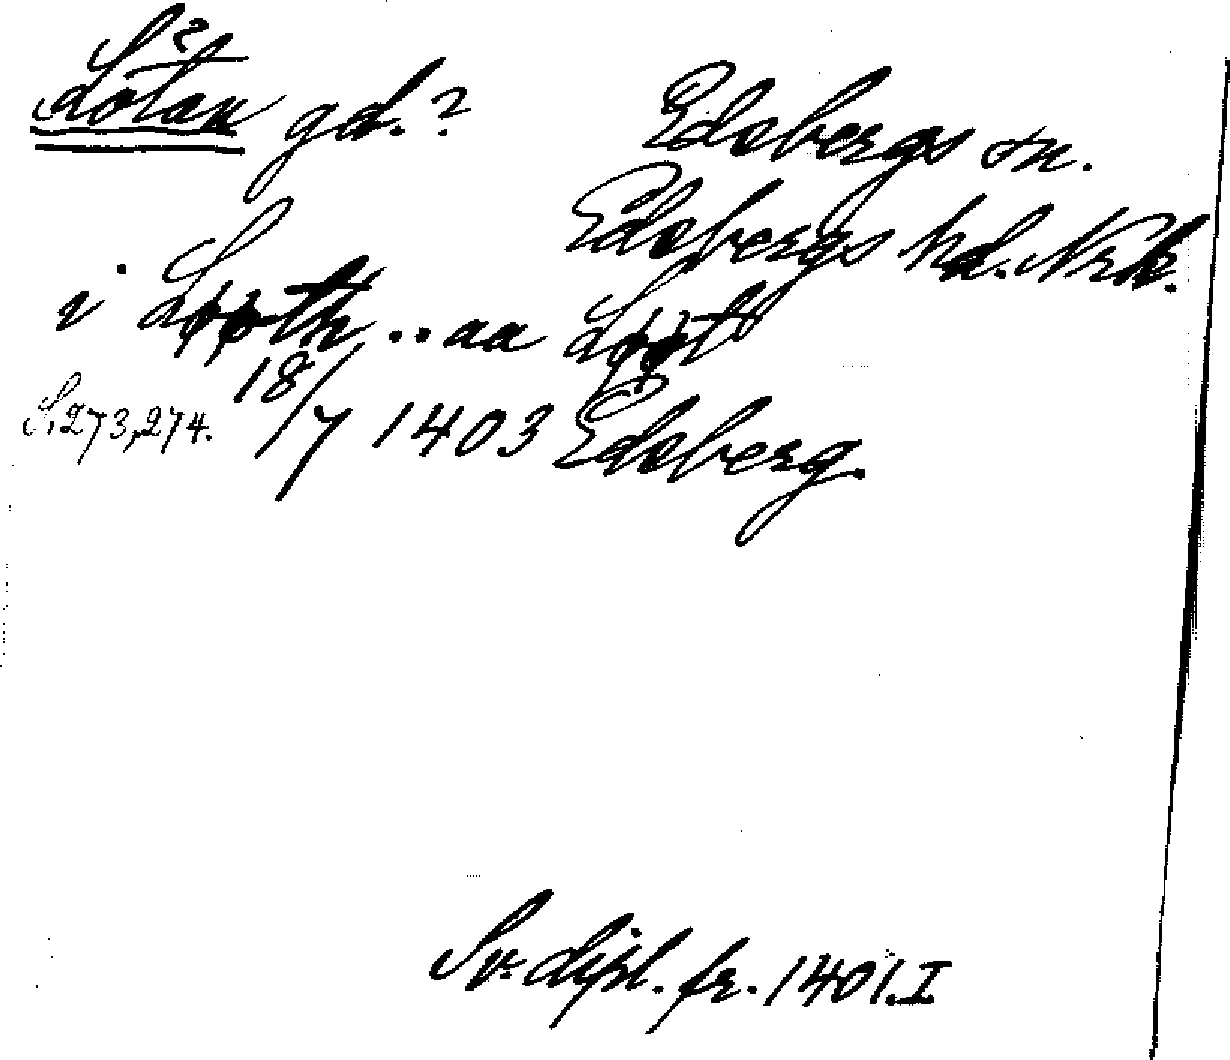 ?
Lötan gd.? Edsbergs sn.
Edsbergs hd. Nrk.
i Løøth .. aa Løøt
S. 273, 274. 18/7 1403 Edsberg.
Sv. dipl. fr. 1401. I